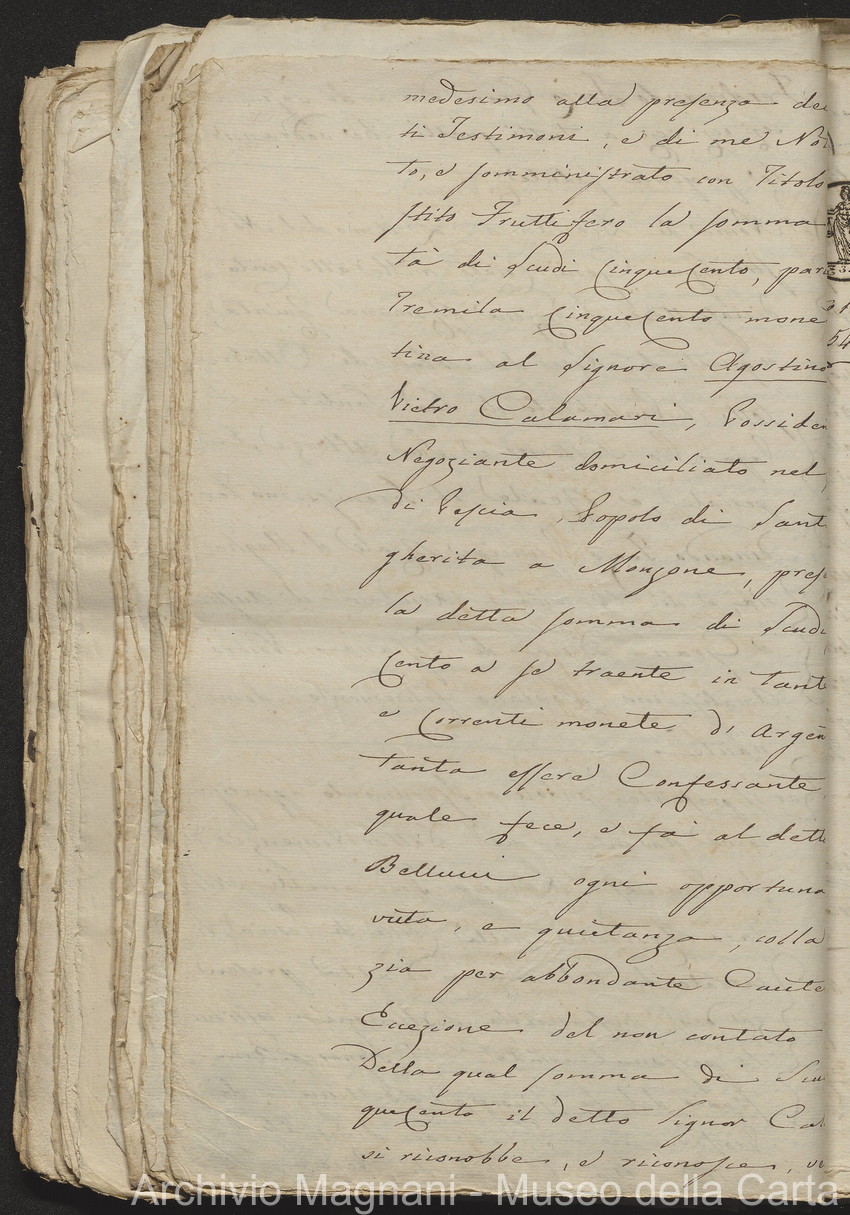 medesimo alla presenza de
ti Testimoni, e di me No
to, e somministrato con Titolo
stito Fruttifero la somma
tà di Scudi CinqueCento, pari
Tremila CinqueCento mone
tina al Signore Agostino
Pietro Calamari, Posside
Negoziante domiciliato nel
di Pescia, Popolo di Sant
gherita a Monzone, pres
la detta somma di Scudi
Cento a se traente in Tant
e Correnti monete d'Argen
tanta essere Confessante
quale fece, e fà al dett
Bellucci ogni opportuna
vuta, e quietanza, colla
zia per abbondante Caute
Eccezione del non contato
Della qual somma di Scu
queCento il detto Signor Ca
si riconobbe, e riconosce,
54
Archivio Magnani - Museo della Carta